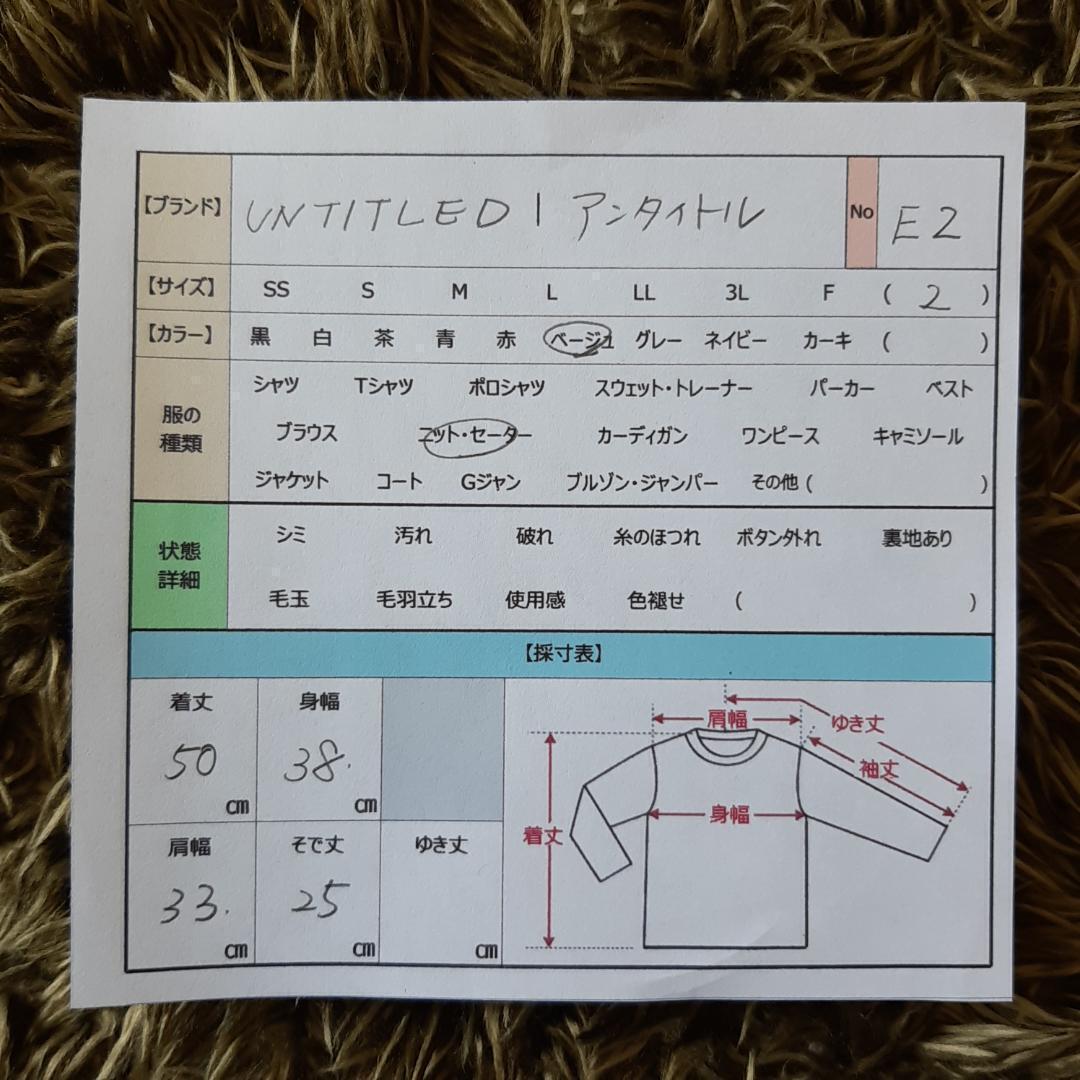 【ブランド】 UNTITLED | アンタイトル No E2
【サイズ】 SS S M L LL 3L F ( 2 )
【カラー】 黒 白 茶 青 赤 ベージュ グレー ネイビー カーキ ( )
服の種類
シャツ Tシャツ ポロシャツ スウェット・トレーナー パーカー ベスト
ブラウス ニット・セーター カーディガン ワンピース キャミソール
ジャケット コート Gジャン ブルゾン・ジャンパー その他 ( )
状態詳細
シミ 汚れ 破れ 糸のほつれ ボタン外れ 裏地あり
毛玉 毛羽立ち 使用感 色褪せ ( )
【採寸表】
着丈 身幅
50 cm 38. cm
肩幅 そで丈 ゆき丈
33. cm 25 cm cm
肩幅 ゆき丈
袖丈
身幅
着丈